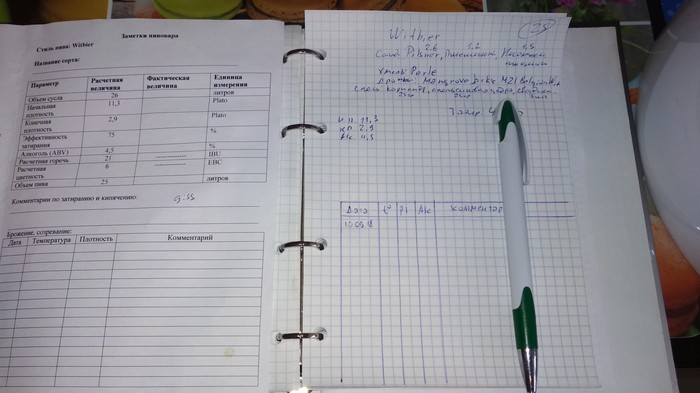 Заметки пивовара
Стиль пива: Witbier
Название сорта:
Параметр Расчетная величина Фактическая величина Единица измерения
Объем сусла 26 литров
Начальная плотность 11,3 Plato
Конечная плотность 2,9 Plato
Эффективность затирания 75 %
Алкоголь (ABV) 4,5 %
Расчетная горечь 21 IBU
Расчетная цветность 6 EBC
Объем пива 25 литров
Комментарии по затиранию и кипячению:
Брожение, созревание:
Дата Температура Плотность Комментарий
Witbier
2,6 1,2 1,5
Солод Pilsner, Пшеничный
Хмель: Perle
Mangrove Jack's M21
н.п. 11,3
кп. 2,9
Alc. 4,5
Дата t° Pl Alc комментар